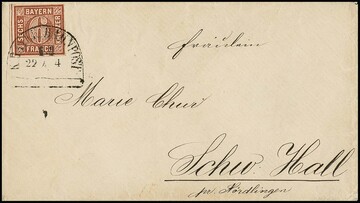 BAYERN
SECHS
FRANCO
22 4
Fräulein
Marie Chur
Schw. Hall
pr. Nördlingen